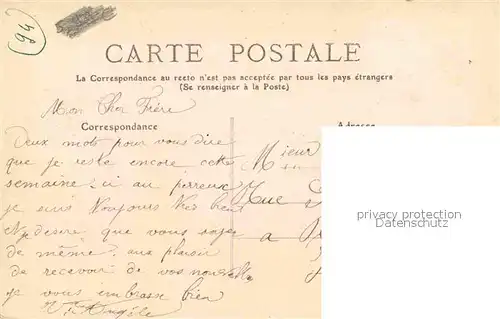 94
CARTE POSTALE
La Correspondance au recto n'est pas acceptée par tous les pays étrangers
(Se renseigner à la Poste)
Mon Cher Frère
Correspondance
Adresse
Deux mots pour vous dire
que je reste encore cette
semaine ici au perreux
je suis toujours très bien
désire que vous soyez
de même, au plaisir
de recevoir de vos nouvelles
je vous embrasse bien
Angèle
Mieur
Rue
a
privacy protection
Datenschutz